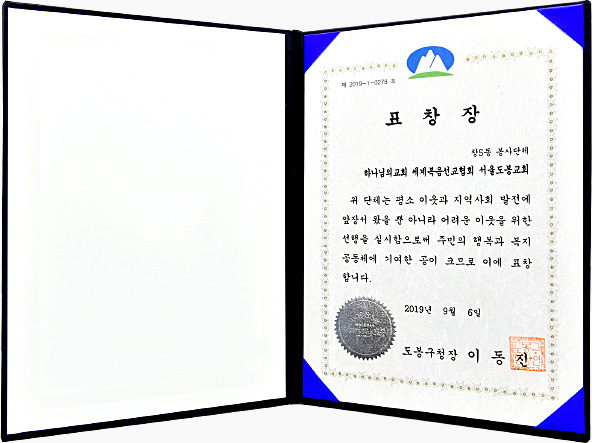 제 2019-1-0278 호
표 창 장
창5동 봉사단체
하나님의교회 세계복음선교협회 서울도봉교회
귀 단체는 평소 이웃과 지역사회 발전에
앞장서 왔을 뿐 아니라 어려운 이웃을 위한
선행을 실시함으로써 주민의 행복과 복지
공동체에 기여한 공이 크므로 이에 표창
합니다.
2019년 9월 6일
도봉구청장 이 동 진